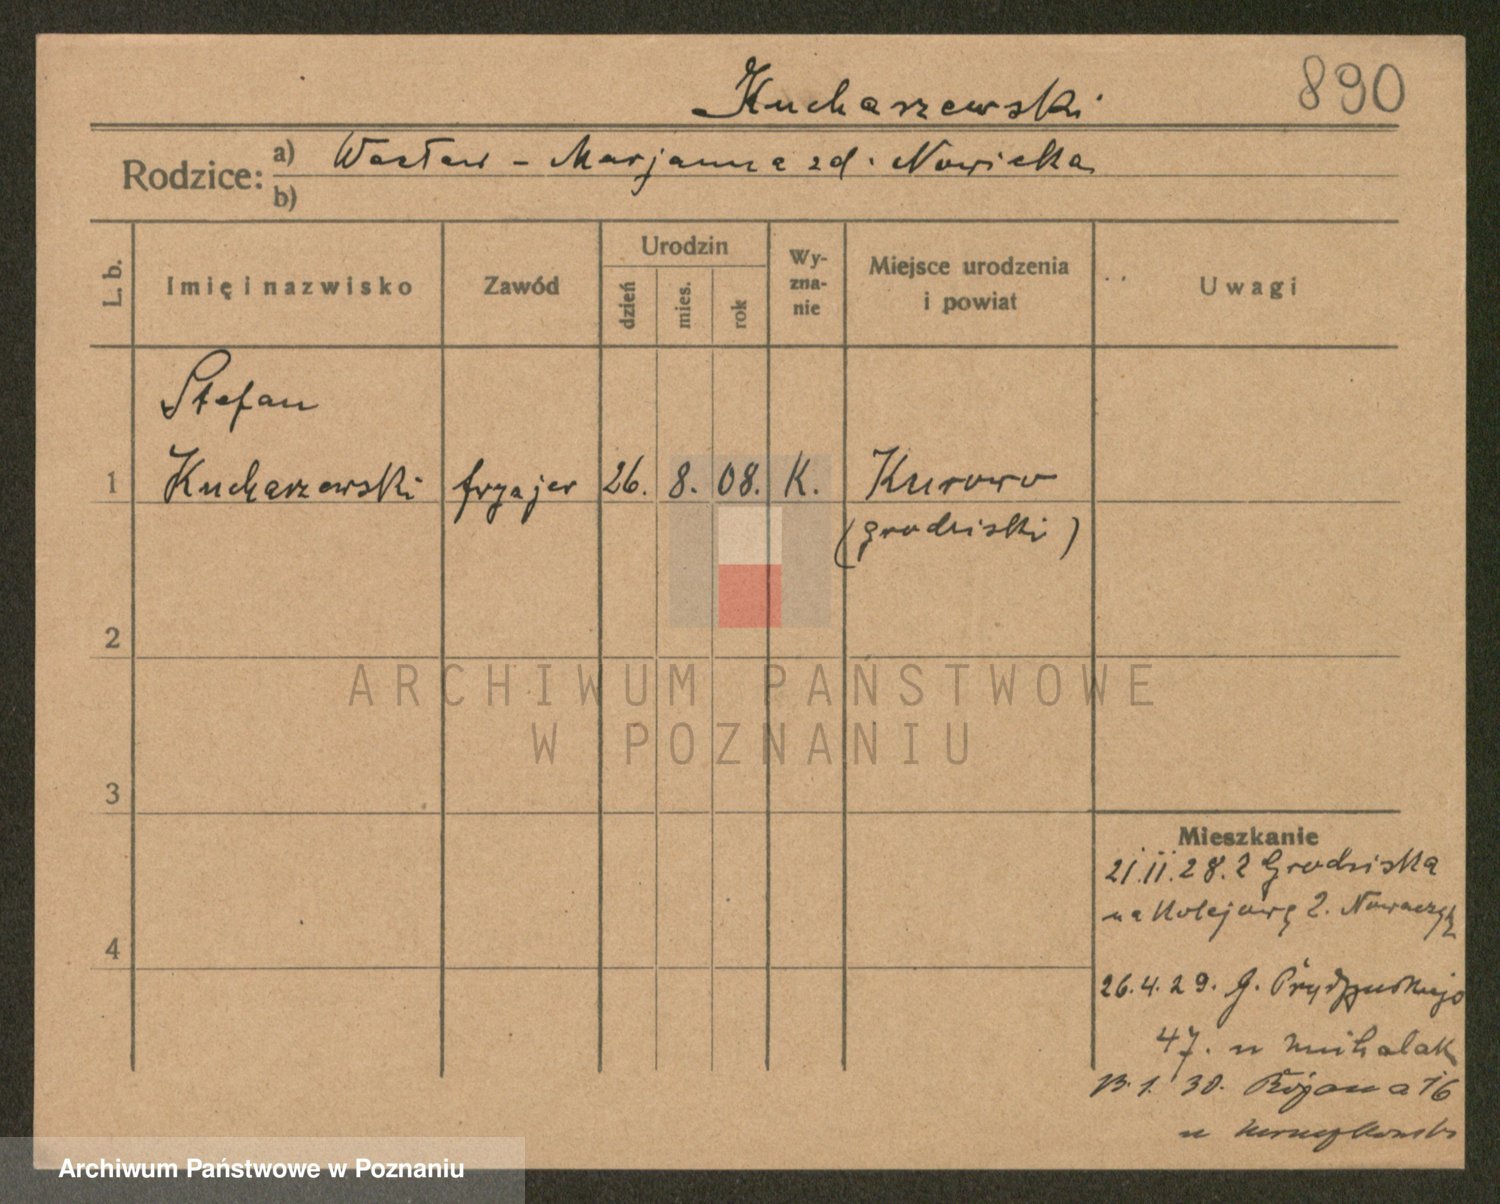 890
Kucharzewski
Rodzice: a) Wacław - Marjanna zd. Nowicka
b)
L. b. Imię i nazwisko Zawód Urodzin dzień mies. rok Wy-zna-nie Miejsce urodzenia i powiat Uwagi
Stefan
1 Kucharzewski fryzjer 26. 8. 08. K. Kurowo
(grodziski)
2
ARCHIWUM PAŃSTWOWE
W POZNANIU
3
Mieszkanie
21.11.28. z Grodziska
na Kolejową 2. Nowaczyk
4
26.4.29. G.
47. u Michalak
13.1.30. 16
u
Archiwum Państwowe w Poznaniu